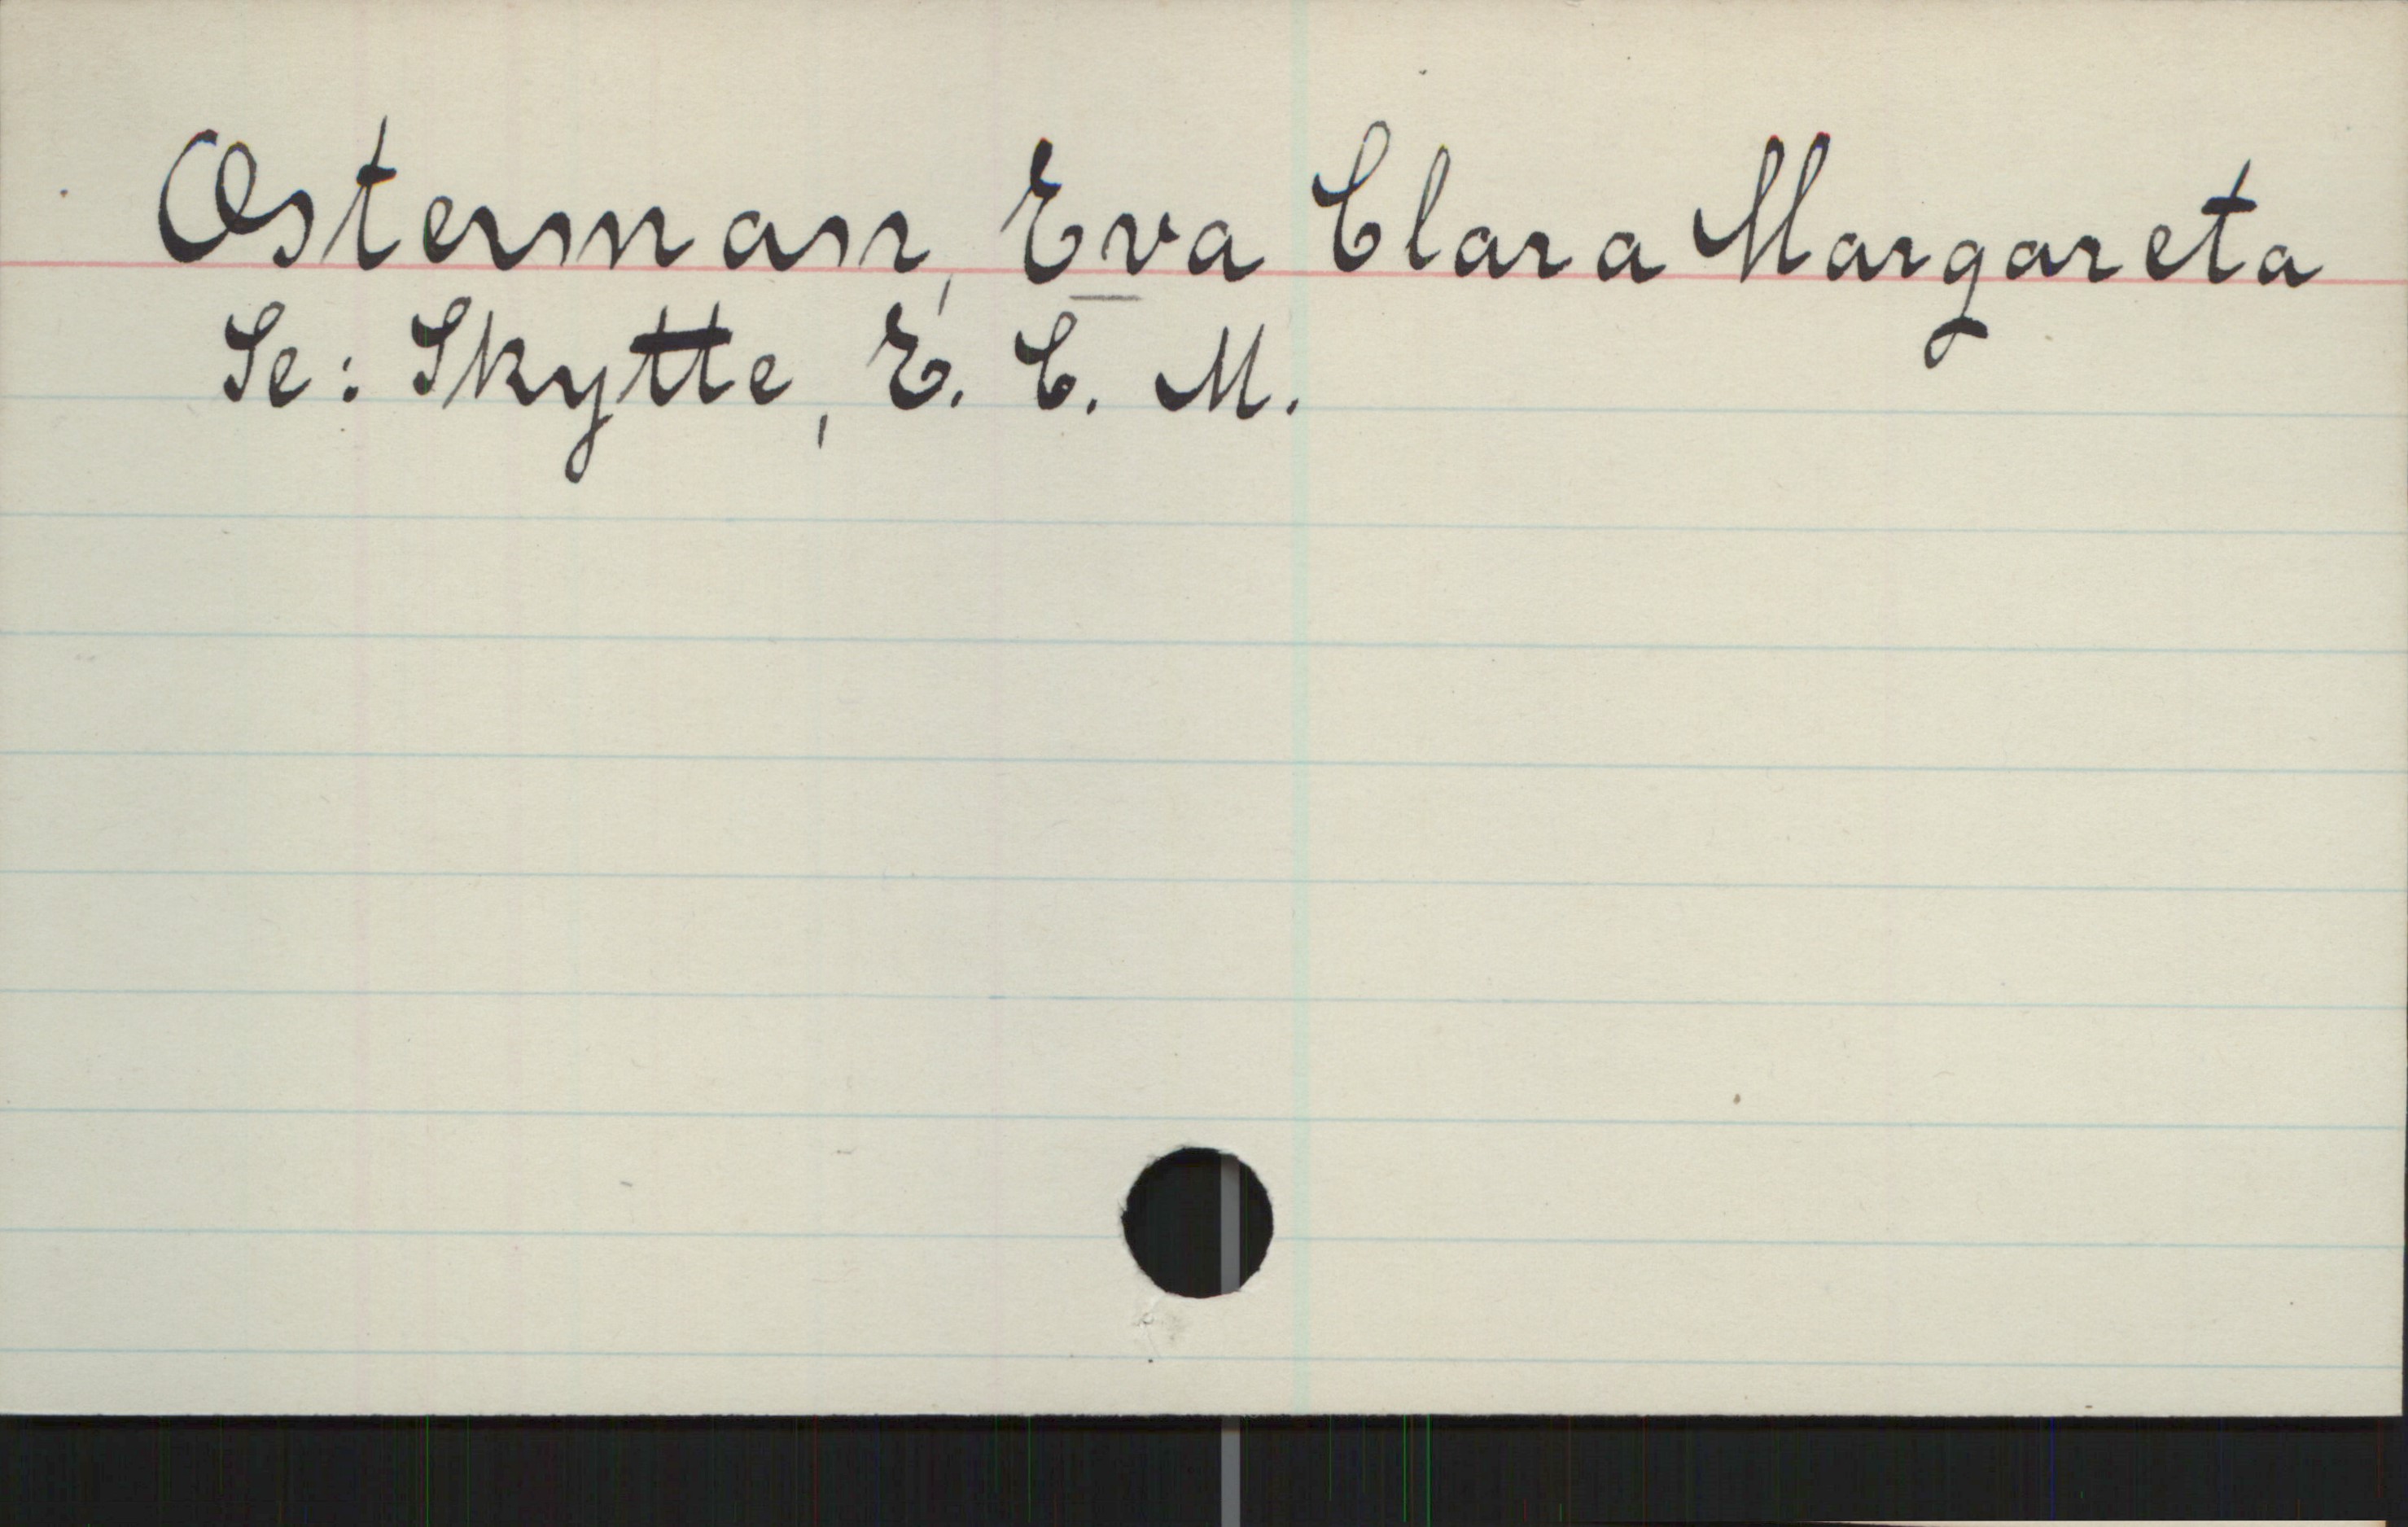 Osterman, Eva Clara Margareta
Se: Skytte, E. C. M.